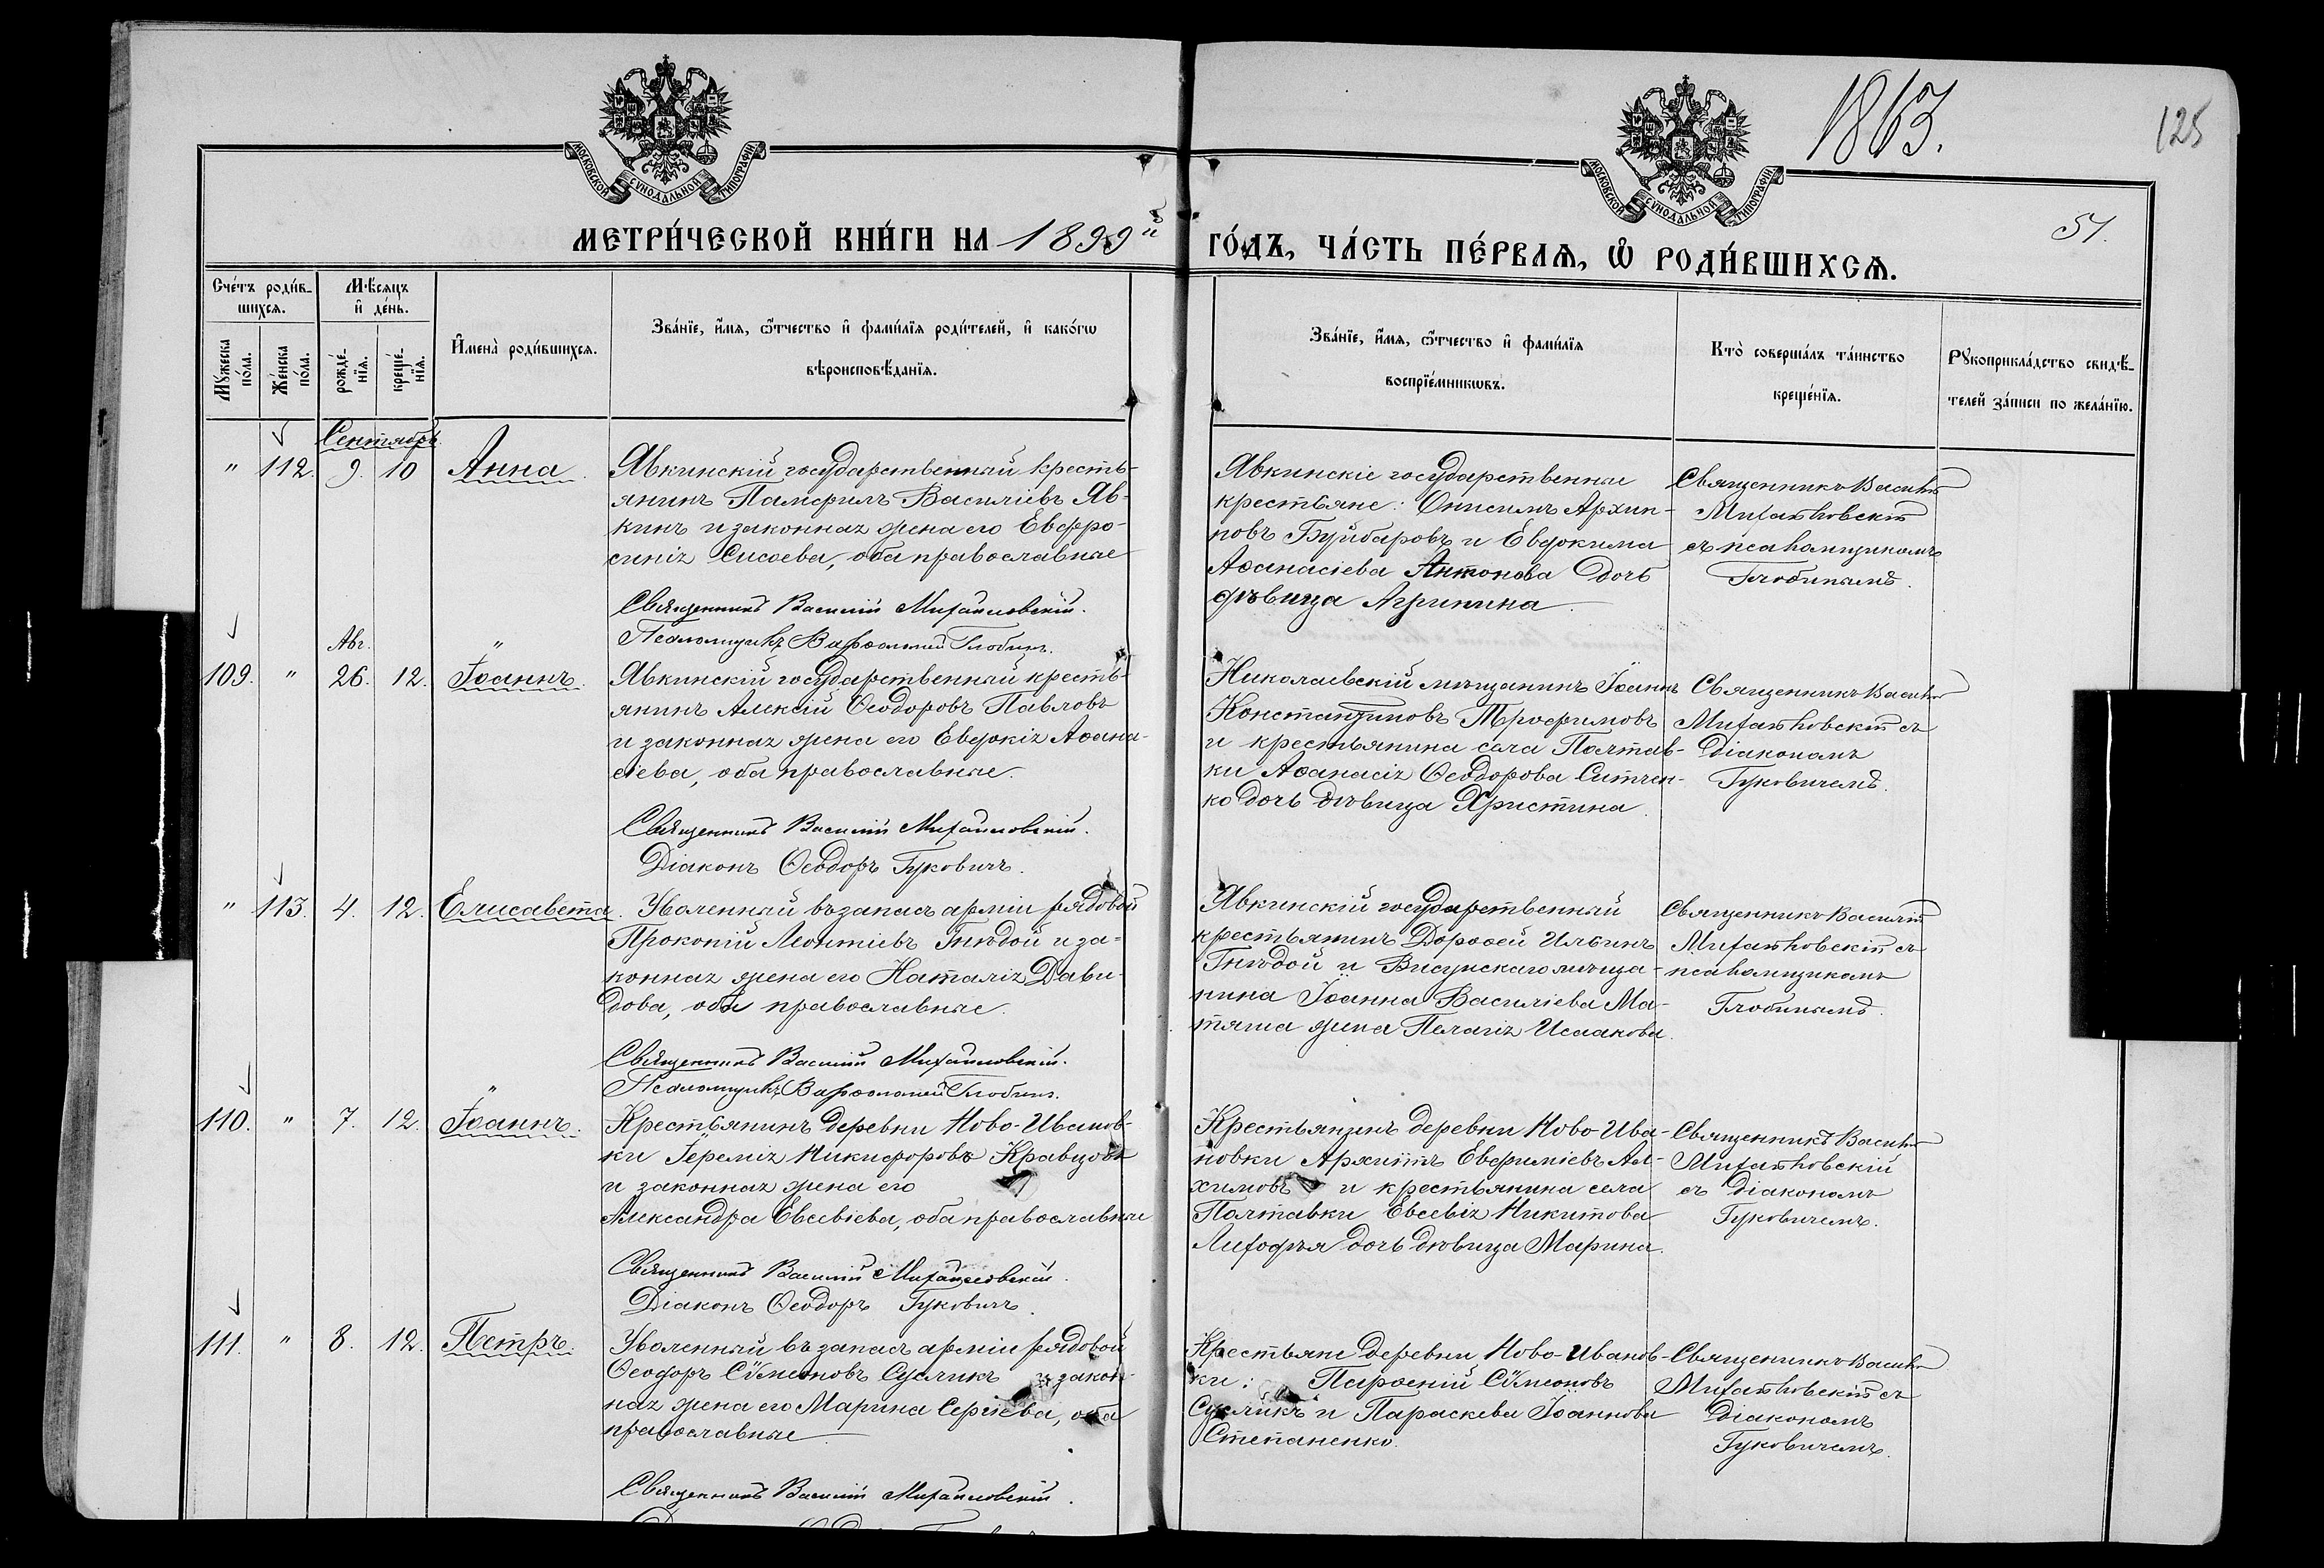 1863.
125
МОСКОВСКОЙ СѴНОДАЛЬНОЙ ТИПОГРАФІИ
МОСКОВСКОЙ СѴНОДАЛЬНОЙ ТИПОГРАФІИ
51.
МЕТРИ́ЧЕСКОЙ КНИ́ГИ НА 1899й ГО́ДЪ, ЧА́СТЬ ПЕ́РВАѦ, Ѡ҆ РОДИ́ВШИХСѦ.
Сче́тъ роди́в-
шихсѧ.
Мѣ́сѧцъ
и҆ де́нь.
Мꙋ́жеска по́ла.
Же́нска по́ла.
рожде́-нїѧ.
креще́-нїѧ.
И҆мена̀ роди́вшихсѧ.
Зва́нїе, и҆́мѧ, ѻ҆́тчество и҆ фами́лїѧ роди́телей, и҆ како́гѡ
вѣроисповѣ́данїѧ.
Зва́нїе, и҆́мѧ, ѻ҆́тчество и҆ фами́лїѧ
воспрїе́мникѡвъ.
Кто̀ соверша́лъ та́инство
креще́нїѧ.
Рꙋкоприкла́дство свидѣ́-
телей за́писи по жела́нїю.
Сентябрь
" 112. 9. 10 Анна.
Явкинскій государственный кресть-
янинъ Памфилъ Василіевъ Яв-
кинъ и законная жена его Евфро-
синія Сисоева, оба православные
Священникъ Василій Михайловскій.
Псаломщикъ Варѳоломей Глобинъ.
Явкинскіе государственные
крестьяне: Онисимъ Архип-
повъ Буйбаровъ и Евдокима
Аѳанасіева Антонова дочь
дѣвица Агрипина.
Священникъ Василій
Михайловскій
съ псаломщикомъ
Глобинымъ.
Авг.
109. " 26. 12. Іоаннъ.
Явкинскій государственный кресть-
янинъ Алексій Ѳеодоровъ Павловъ
и законная жена его Евдокія Аѳана-
сіева, оба православные.
Священникъ Василій Михайловскій.
Діаконъ Ѳеодоръ Гуковичъ.
Николаевскій мѣщанинъ Іоаннъ
Константиновъ Трофимовъ
и крестьянина села Полтав-
ки Аѳанасія Ѳеодорова Ситчен-
ко дочь дѣвица Христина.
Священникъ Василій
Михайловскій съ
Діакономъ
Гуковичемъ.
" 113. 4. 12. Елисавета.
Уволенный въ запасъ арміи рядовой
Прокопій Леонтіевъ Гнѣдой и за-
конная жена его Наталія Дави-
дова, оба православные.
Священникъ Василій Михайловскій.
Псаломщикъ Варѳоломей Глобинъ.
Явкинскій государственный
крестьянинъ Дороѳей Ильинъ
Гнѣдой и Висунскаго мѣща-
нина Іоанна Василіева Ма-
тяша жена Пелагія Исаакова.
Священникъ Василій
Михайловскій съ
псаломщикомъ
Глобинымъ.
110. " 7. 12. Іоаннъ.
Крестьянинъ деревни Ново-Иванов-
ки Іеремія Никифоровъ Кравцовъ
и законная жена его
Александра Евсевіева, оба православные
Священникъ Василій Михайловскій.
Діаконъ Ѳеодоръ Гуковичъ.
Крестьянинъ деревни Ново-Ива-
новки Архиппъ Евфиміевъ Ал-
химовъ и крестьянина села
Полтавки Евсевія Никитова
дочь дѣвица Марина.
Священникъ Василій
Михайловскій
съ Діакономъ
Гуковичемъ.
111. " 8. 12. Петръ.
Уволенный въ запасъ арміи рядовой
Ѳеодоръ Сѷмеоновъ Сусликъ и закон-
ная жена его Марина Сергіева, оба
православные
Священникъ Василій Михайловскій.
Крестьяне деревни Ново-Иванов-
ки: Парѳеній Сѷмеоновъ
Сусликъ и Параскева Іоаннова
Степаненко.
Священникъ Василій
Михайловскій съ
Діакономъ
Гуковичемъ.